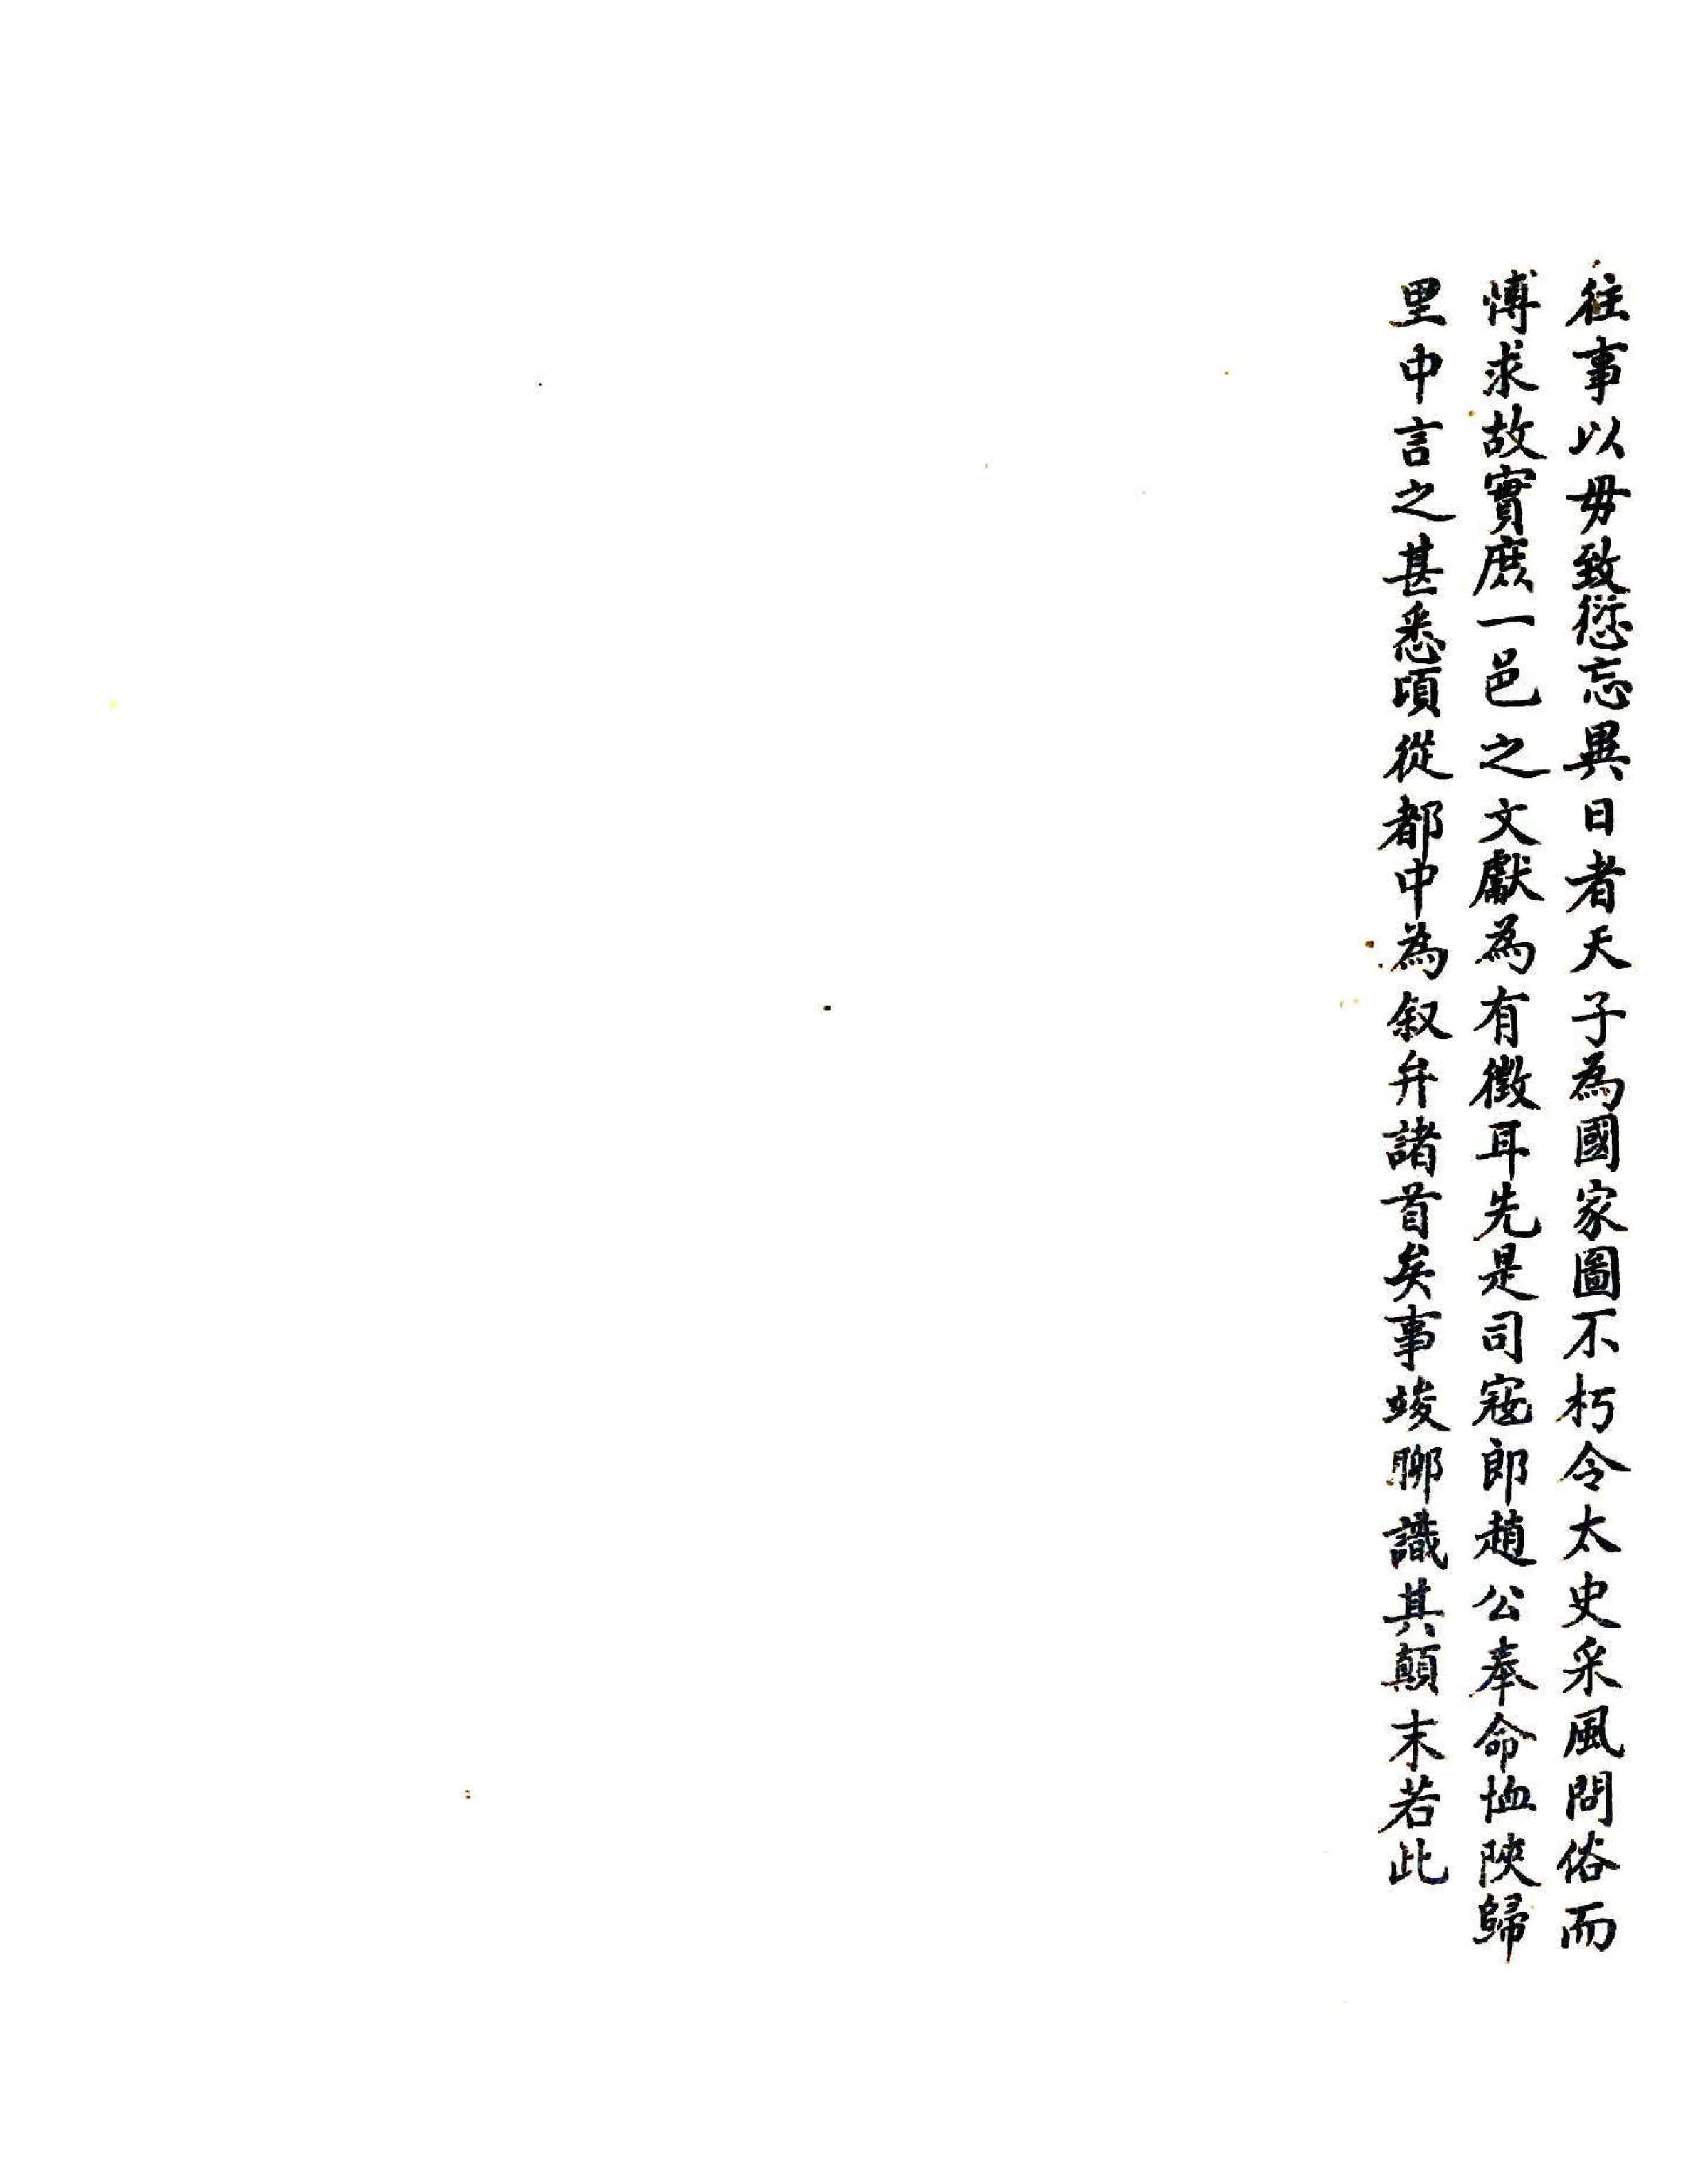 往事以毋致愆忘異日者天子為國家圖不朽令太史采風問俗而
博求故實庶一邑之文獻為有徵耳先是司寇郎趙公奉命恤陝歸
里中言之甚悉頃從都中為叙弁諸首矣事竣聊識其顛末若此